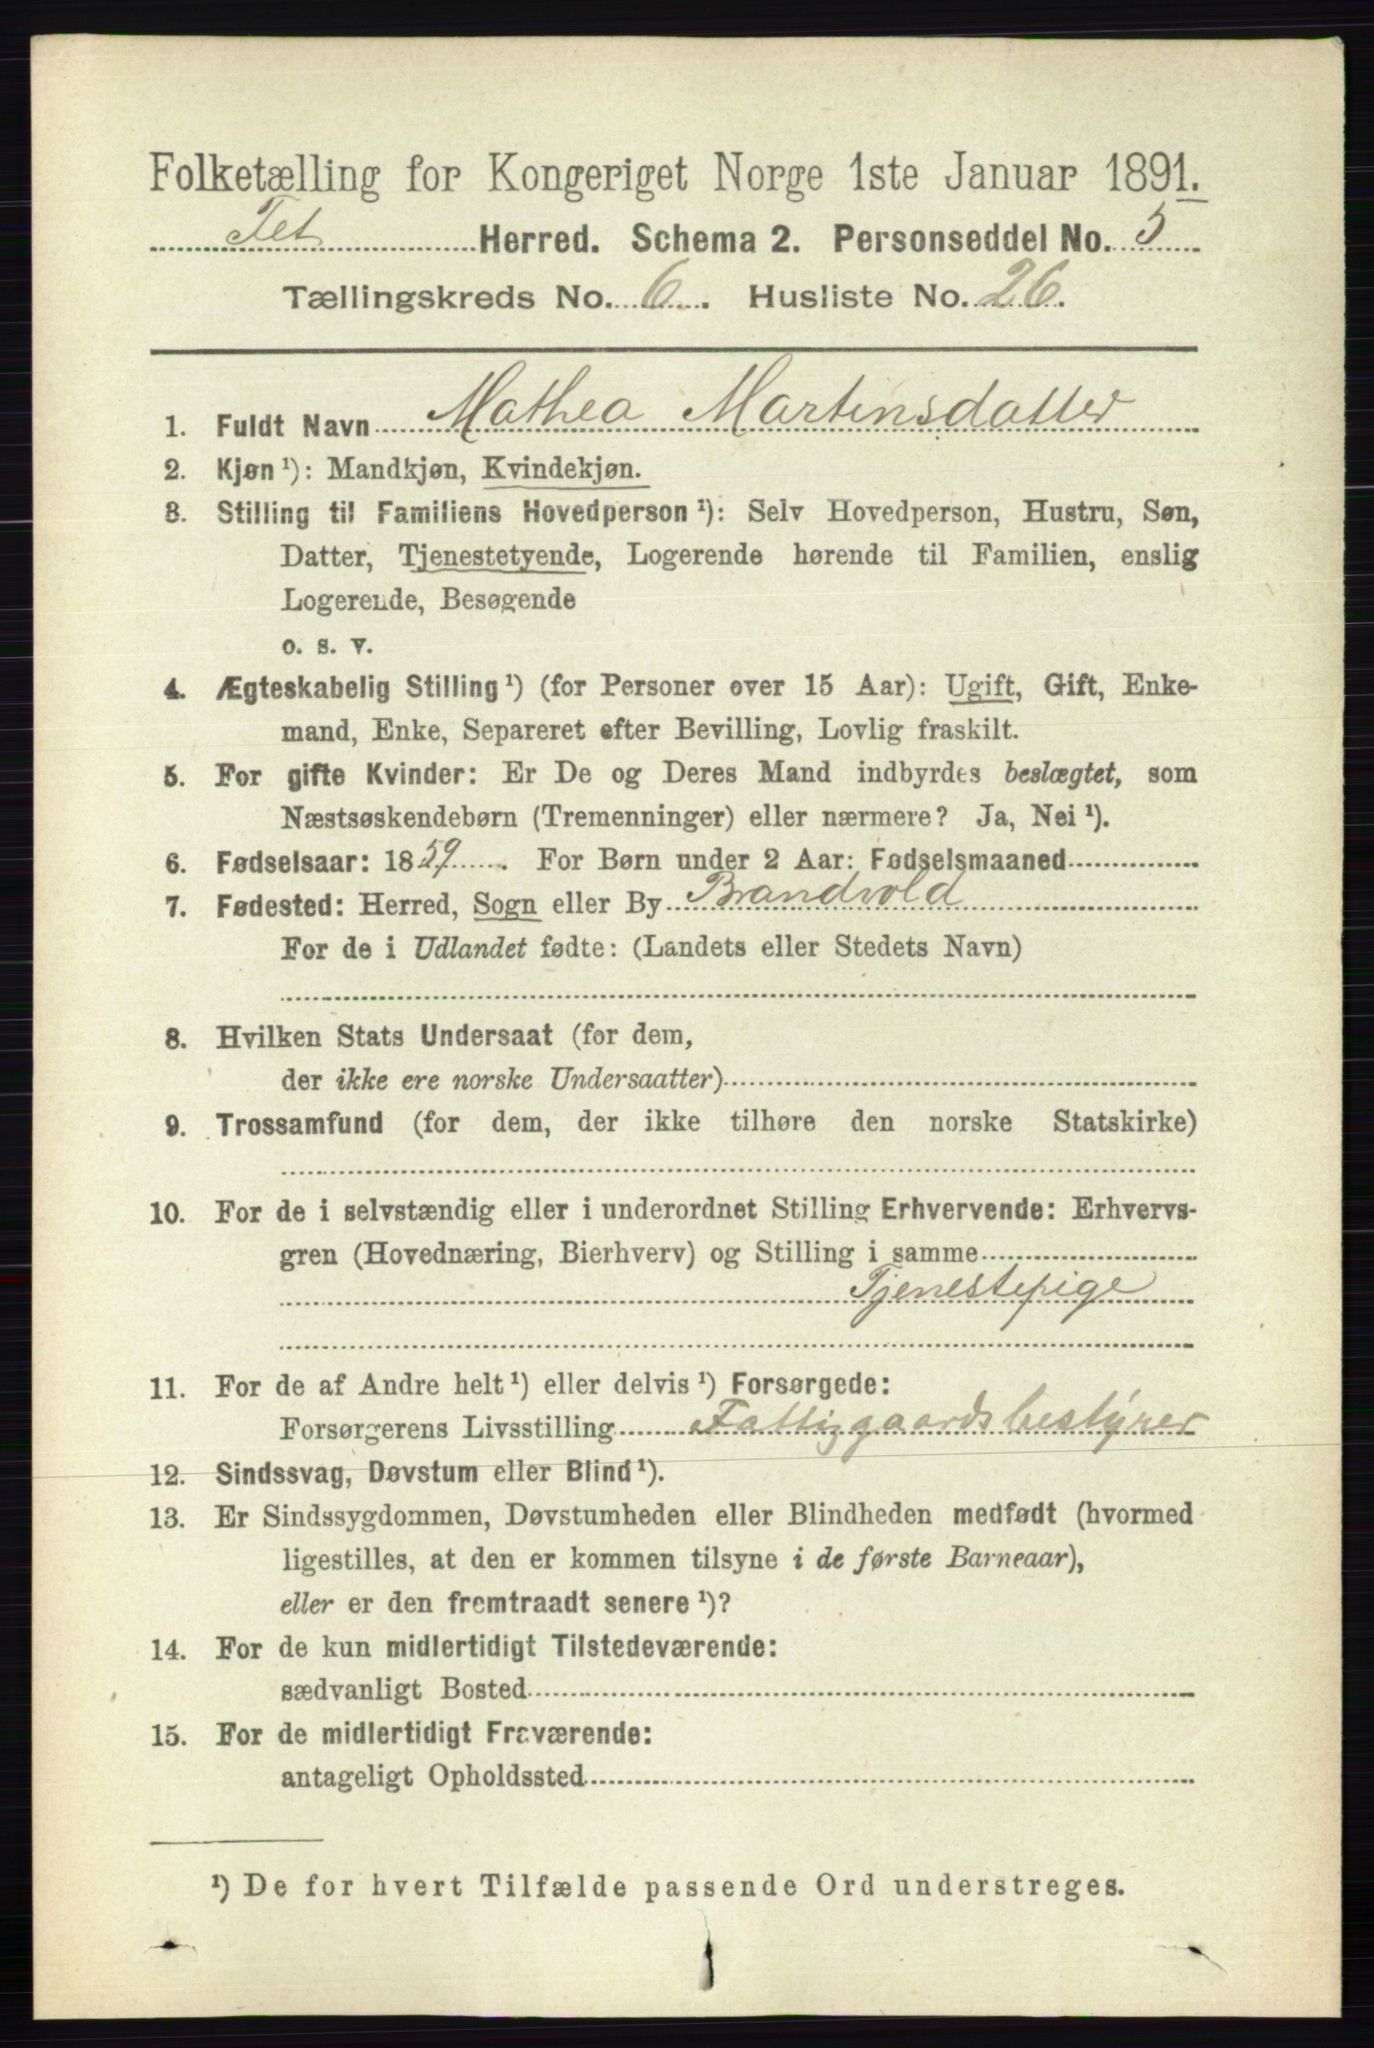 Folketælling for Kongeriget Norge 1ste Januar 1891.
Fet Herred. Schema 2. Personseddel No. 5
Tællingskreds No. 6. Husliste No. 26.
1. Fuldt Navn Mathea Martinsdatter
2. Kjøn ¹): Mandkjøn, Kvindekjøn.
3. Stilling til Familiens Hovedperson ¹): Selv Hovedperson, Hustru, Søn,
Datter, Tjenestetyende, Logerende hørende til Familien, enslig
Logerende, Besøgende
o. s. v.
4. Ægteskabelig Stilling ¹) (for Personer over 15 Aar): Ugift, Gift, Enke-
mand, Enke, Separeret efter Bevilling, Lovlig fraskilt.
5. For gifte Kvinder: Er De og Deres Mand indbyrdes beslægtet, som
Næstsøskendebørn (Tremenninger) eller nærmere? Ja, Nei ¹).
6. Fødselsaar: 1859. For Børn under 2 Aar: Fødselsmaaned
7. Fødested: Herred, Sogn eller By Brandvold
For de i Udlandet fødte: (Landets eller Stedets Navn)
8. Hvilken Stats Undersaat (for dem,
der ikke ere norske Undersaatter)
9. Trossamfund (for dem, der ikke tilhøre den norske Statskirke)
10. For de i selvstændig eller i underordnet Stilling Erhvervende: Erhvervs-
gren (Hovednæring, Bierhverv) og Stilling i samme
Tjenestepige
11. For de af Andre helt ¹) eller delvis ¹) Forsørgede:
Forsørgerens Livsstilling Fattiggaardsbestyrer
12. Sindssvag, Døvstum eller Blind ¹).
13. Er Sindssygdommen, Døvstumheden eller Blindheden medfødt (hvormed
ligestilles, at den er kommen tilsyne i de første Barneaar),
eller er den fremtraadt senere ¹)?
14. For de kun midlertidigt Tilstedeværende:
sædvanligt Bosted
15. For de midlertidigt Fraværende:
antageligt Opholdssted
¹) De for hvert Tilfælde passende Ord understreges.